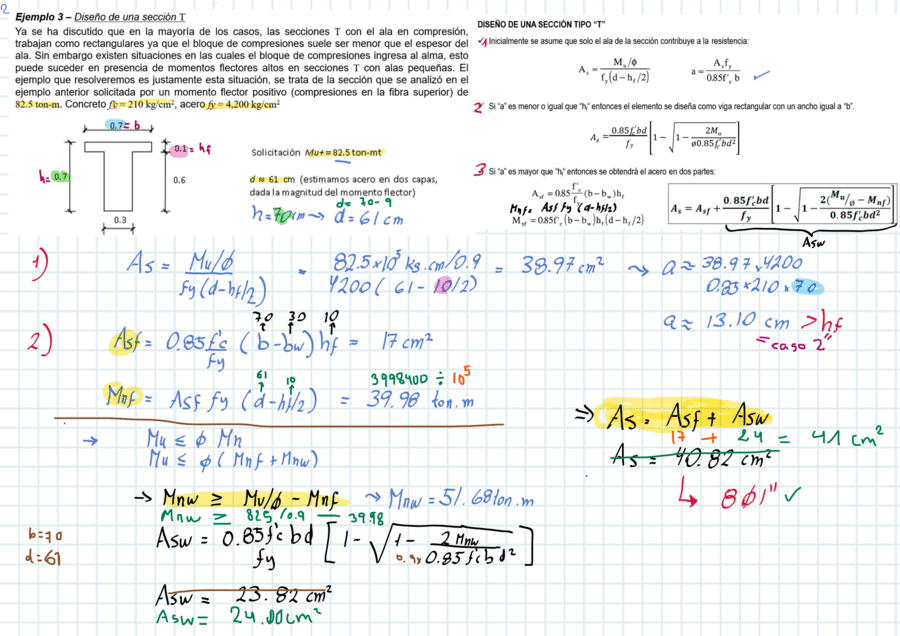 2
Ejemplo 3 – Diseño de una sección T
Ya se ha discutido que en la mayoría de los casos, las secciones T con el ala en compresión,
trabajan como rectangulares ya que el bloque de compresiones suele ser menor que el espesor del
ala. Sin embargo existen situaciones en las cuales el bloque de compresiones ingresa al alma, esto
puede suceder en presencia de momentos flectores altos en secciones T con alas pequeñas. El
ejemplo que resolveremos es justamente esta situación, se trata de la sección que se analizó en el
ejemplo anterior solicitada por un momento flector positivo (compresiones en la fibra superior) de
82.5 ton-m. Concreto f'c= 210 kg/cm², acero fy = 4,200 kg/cm²
0.7 = b
0.1 = hf
h= 0.7
0.6
0.3
Solicitación Mu+= 82.5 ton-mt
d ≈ 61 cm (estimamos acero en dos capas,
dada la magnitud del momento flector)
d= 70-9
h=70cm → d= 61 cm
DISEÑO DE UNA SECCIÓN TIPO “T”
✓1 Inicialmente se asume que solo el ala de la sección contribuye a la resistencia:
A_s = (M_u/ϕ) / (f_y(d − h_f/2)) a = (A_s f_y) / (0.85f'_c b) ✓
2 Si “a” es menor o igual que “h_f” entonces el elemento se diseña como viga rectangular con un ancho igual a “b”.
A_s = (0.85f'_c bd / f_y) [1 − √(1 − 2M_u / (ø0.85f'_c bd²))]
3 Si “a” es mayor que “h_f” entonces se obtendrá el acero en dos partes:
A_sf = 0.85 (f'_c / f_y) (b − b_w)h_f
Mnf= Asf fy (d-hf/2)
M_nf = 0.85f'_c(b − b_w)h_f(d − h_f/2)
A_s = A_sf + (0.85f'_c bd / f_y) [1 − √(1 − 2(M_u/ø − M_nf) / (0.85f'_c bd²))]
Asw
1) As = (Mu/ϕ) / (fy(d-hf/2)) = (82.5x10⁵ kg.cm/0.9) / (4200 (61-10/2)) = 38.97 cm² → a ≈ (38.97 x 4200) / (0.85 x 210 x 70)
a ≈ 13.10 cm > hf
= "caso 2"
70 30 10
2) Asf = 0.85 (f'c / fy) (b-bw) hf = 17 cm²
61 10 3998400 ÷ 10⁵
Mnf = Asf fy (d-hf/2) = 39.98 ton.m
→ Mu ≤ ϕ Mn
Mu ≤ ϕ (Mnf + Mnw)
→ Mnw ≥ Mu/ϕ - Mnf → Mnw = 51.68 ton.m
Mnw ≥ 825/0.9 − 39.98
b=70
d=61
Asw = (0.85f'c bd / fy) [1 - √(1 - 2 Mnw / (0.9x 0.85f'c bd²))]
Asw = 23.82 cm²
Asw = 24.00cm²
⇒ As = Asf + Asw
17 + 24 = 41 cm²
As = 40.82 cm²
↳ 8ϕ1" ✓